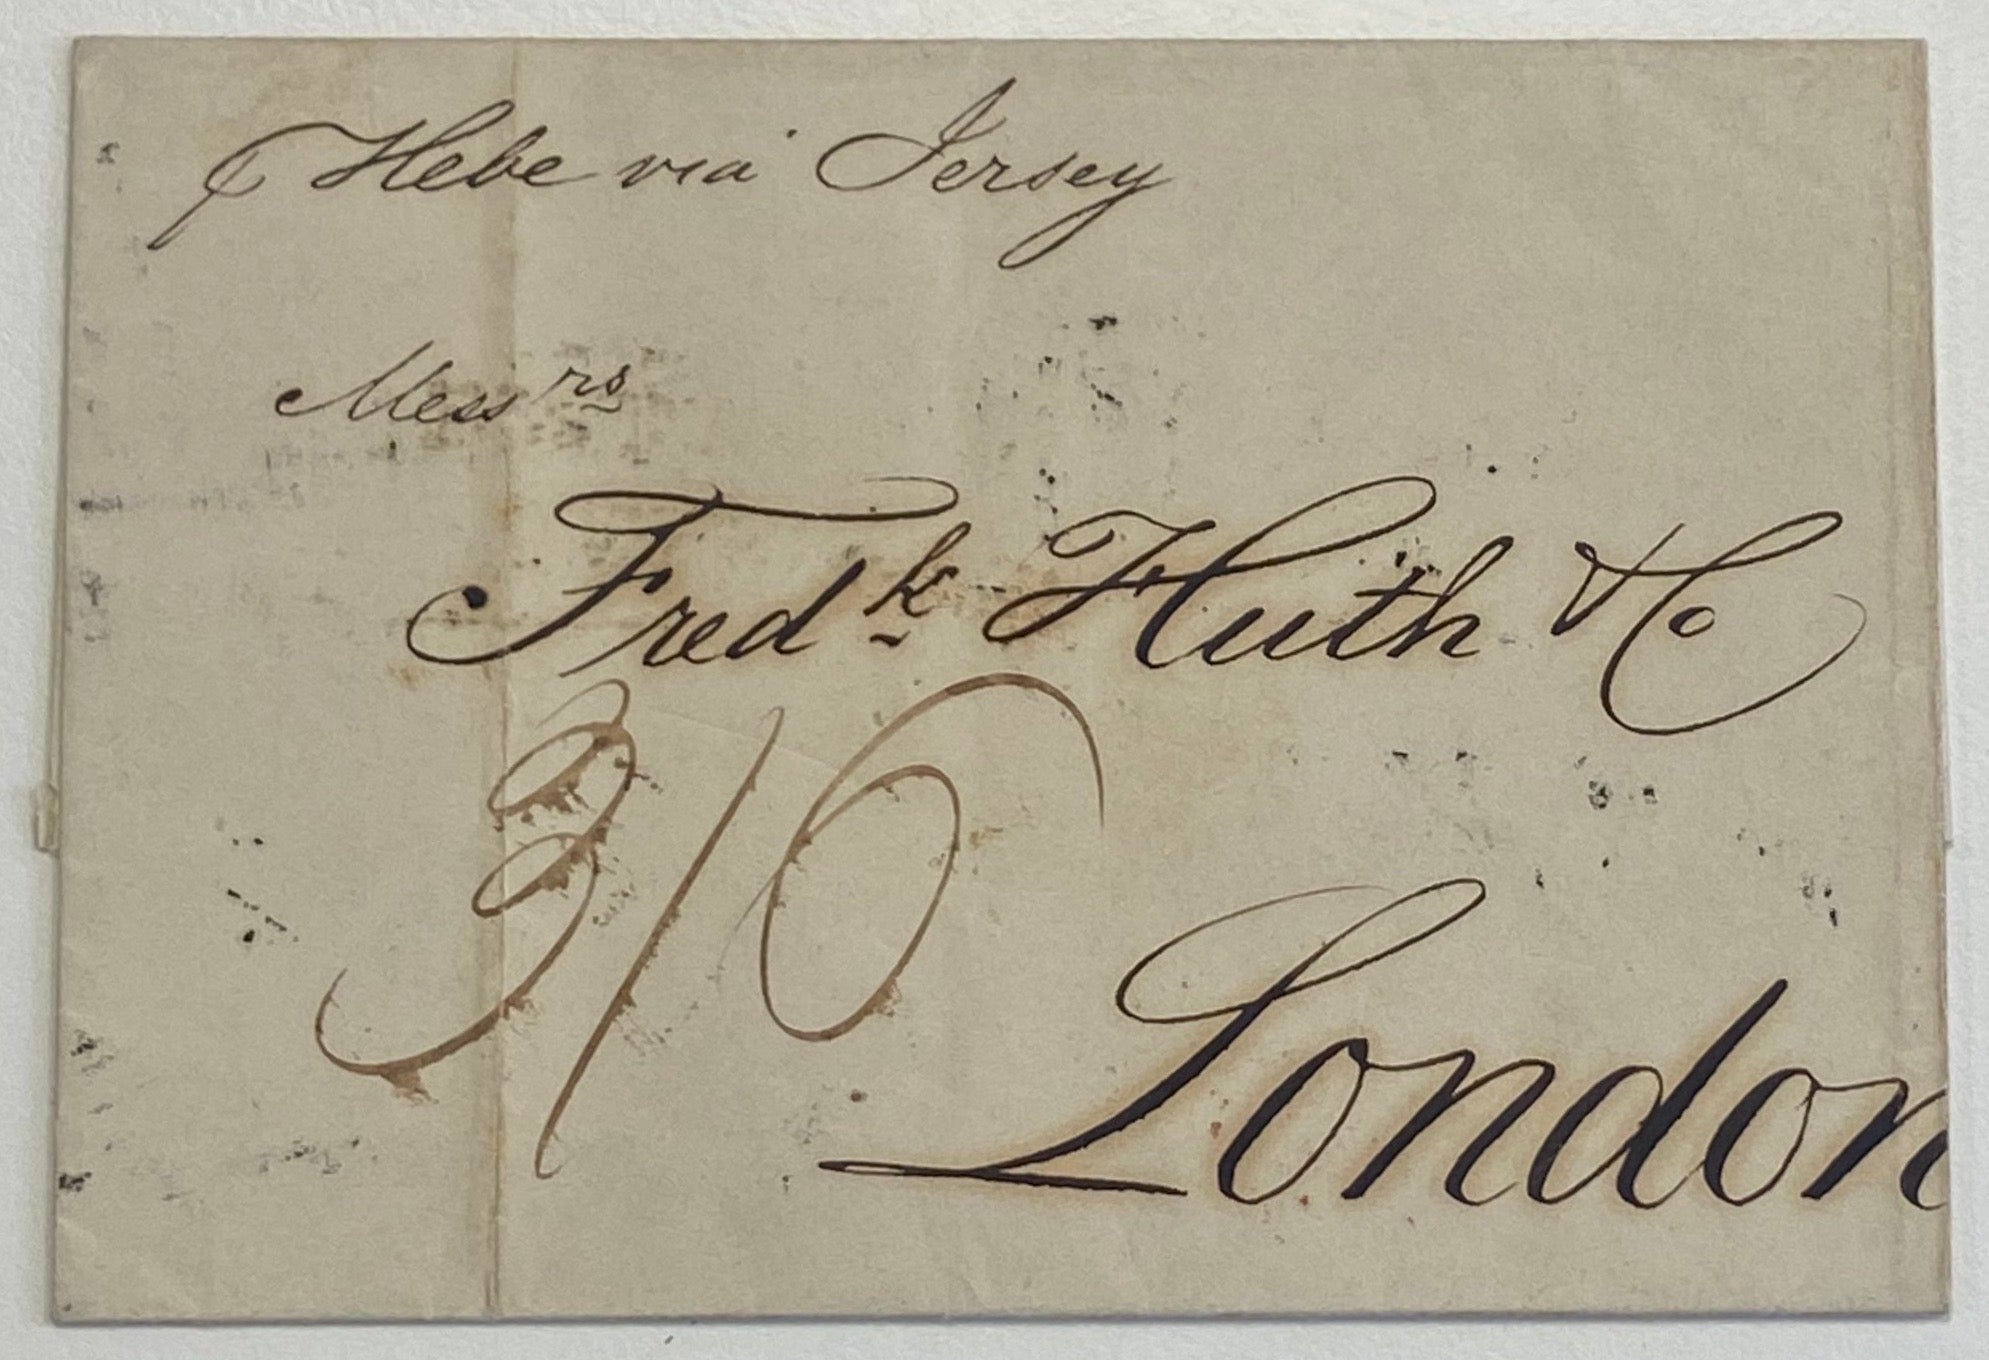 ⅌ Hebe via Jersey
Messrs
Fredk Huth & Co
3/6
London